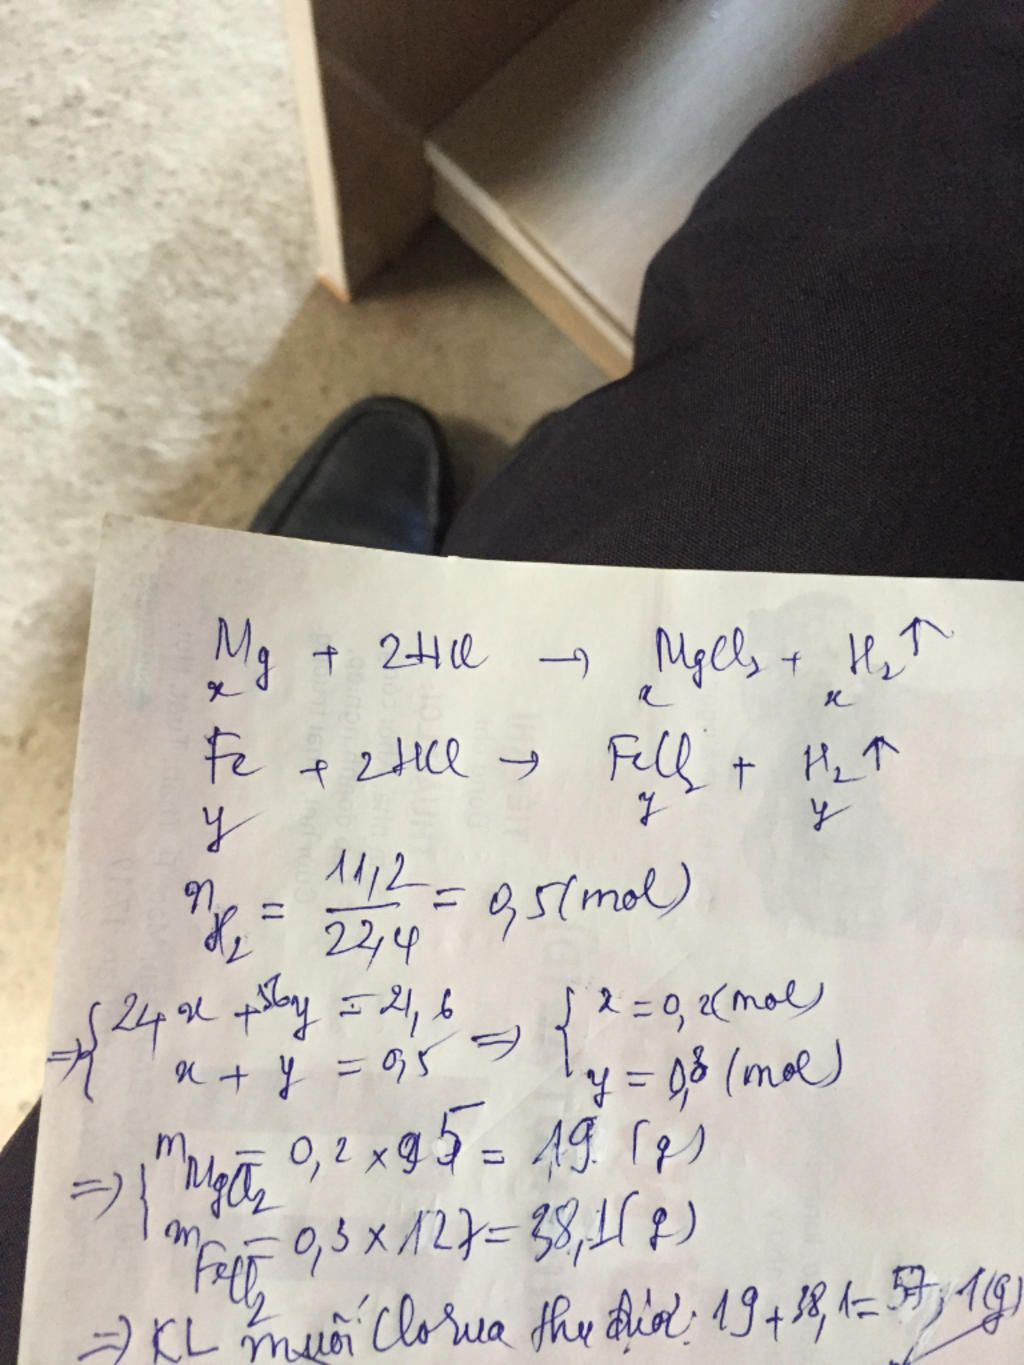 Mg + 2HCl → MgCl₂ + H₂↑
x x x
Fe + 2HCl → FeCl₂ + H₂↑
y y y
n_H₂ = 11,2/22,4 = 0,5(mol)
⇒ { 24x + 56y = 21,6 ⇒ { x = 0,2(mol)
x + y = 0,5 y = 0,3 (mol)
⇒ { m_MgCl₂ = 0,2 × 95 = 19 (g)
m_FeCl₂ = 0,3 × 127 = 38,1(g)
⇒ KL muối Clorua thu được: 19 + 38,1 = 57,1(g)